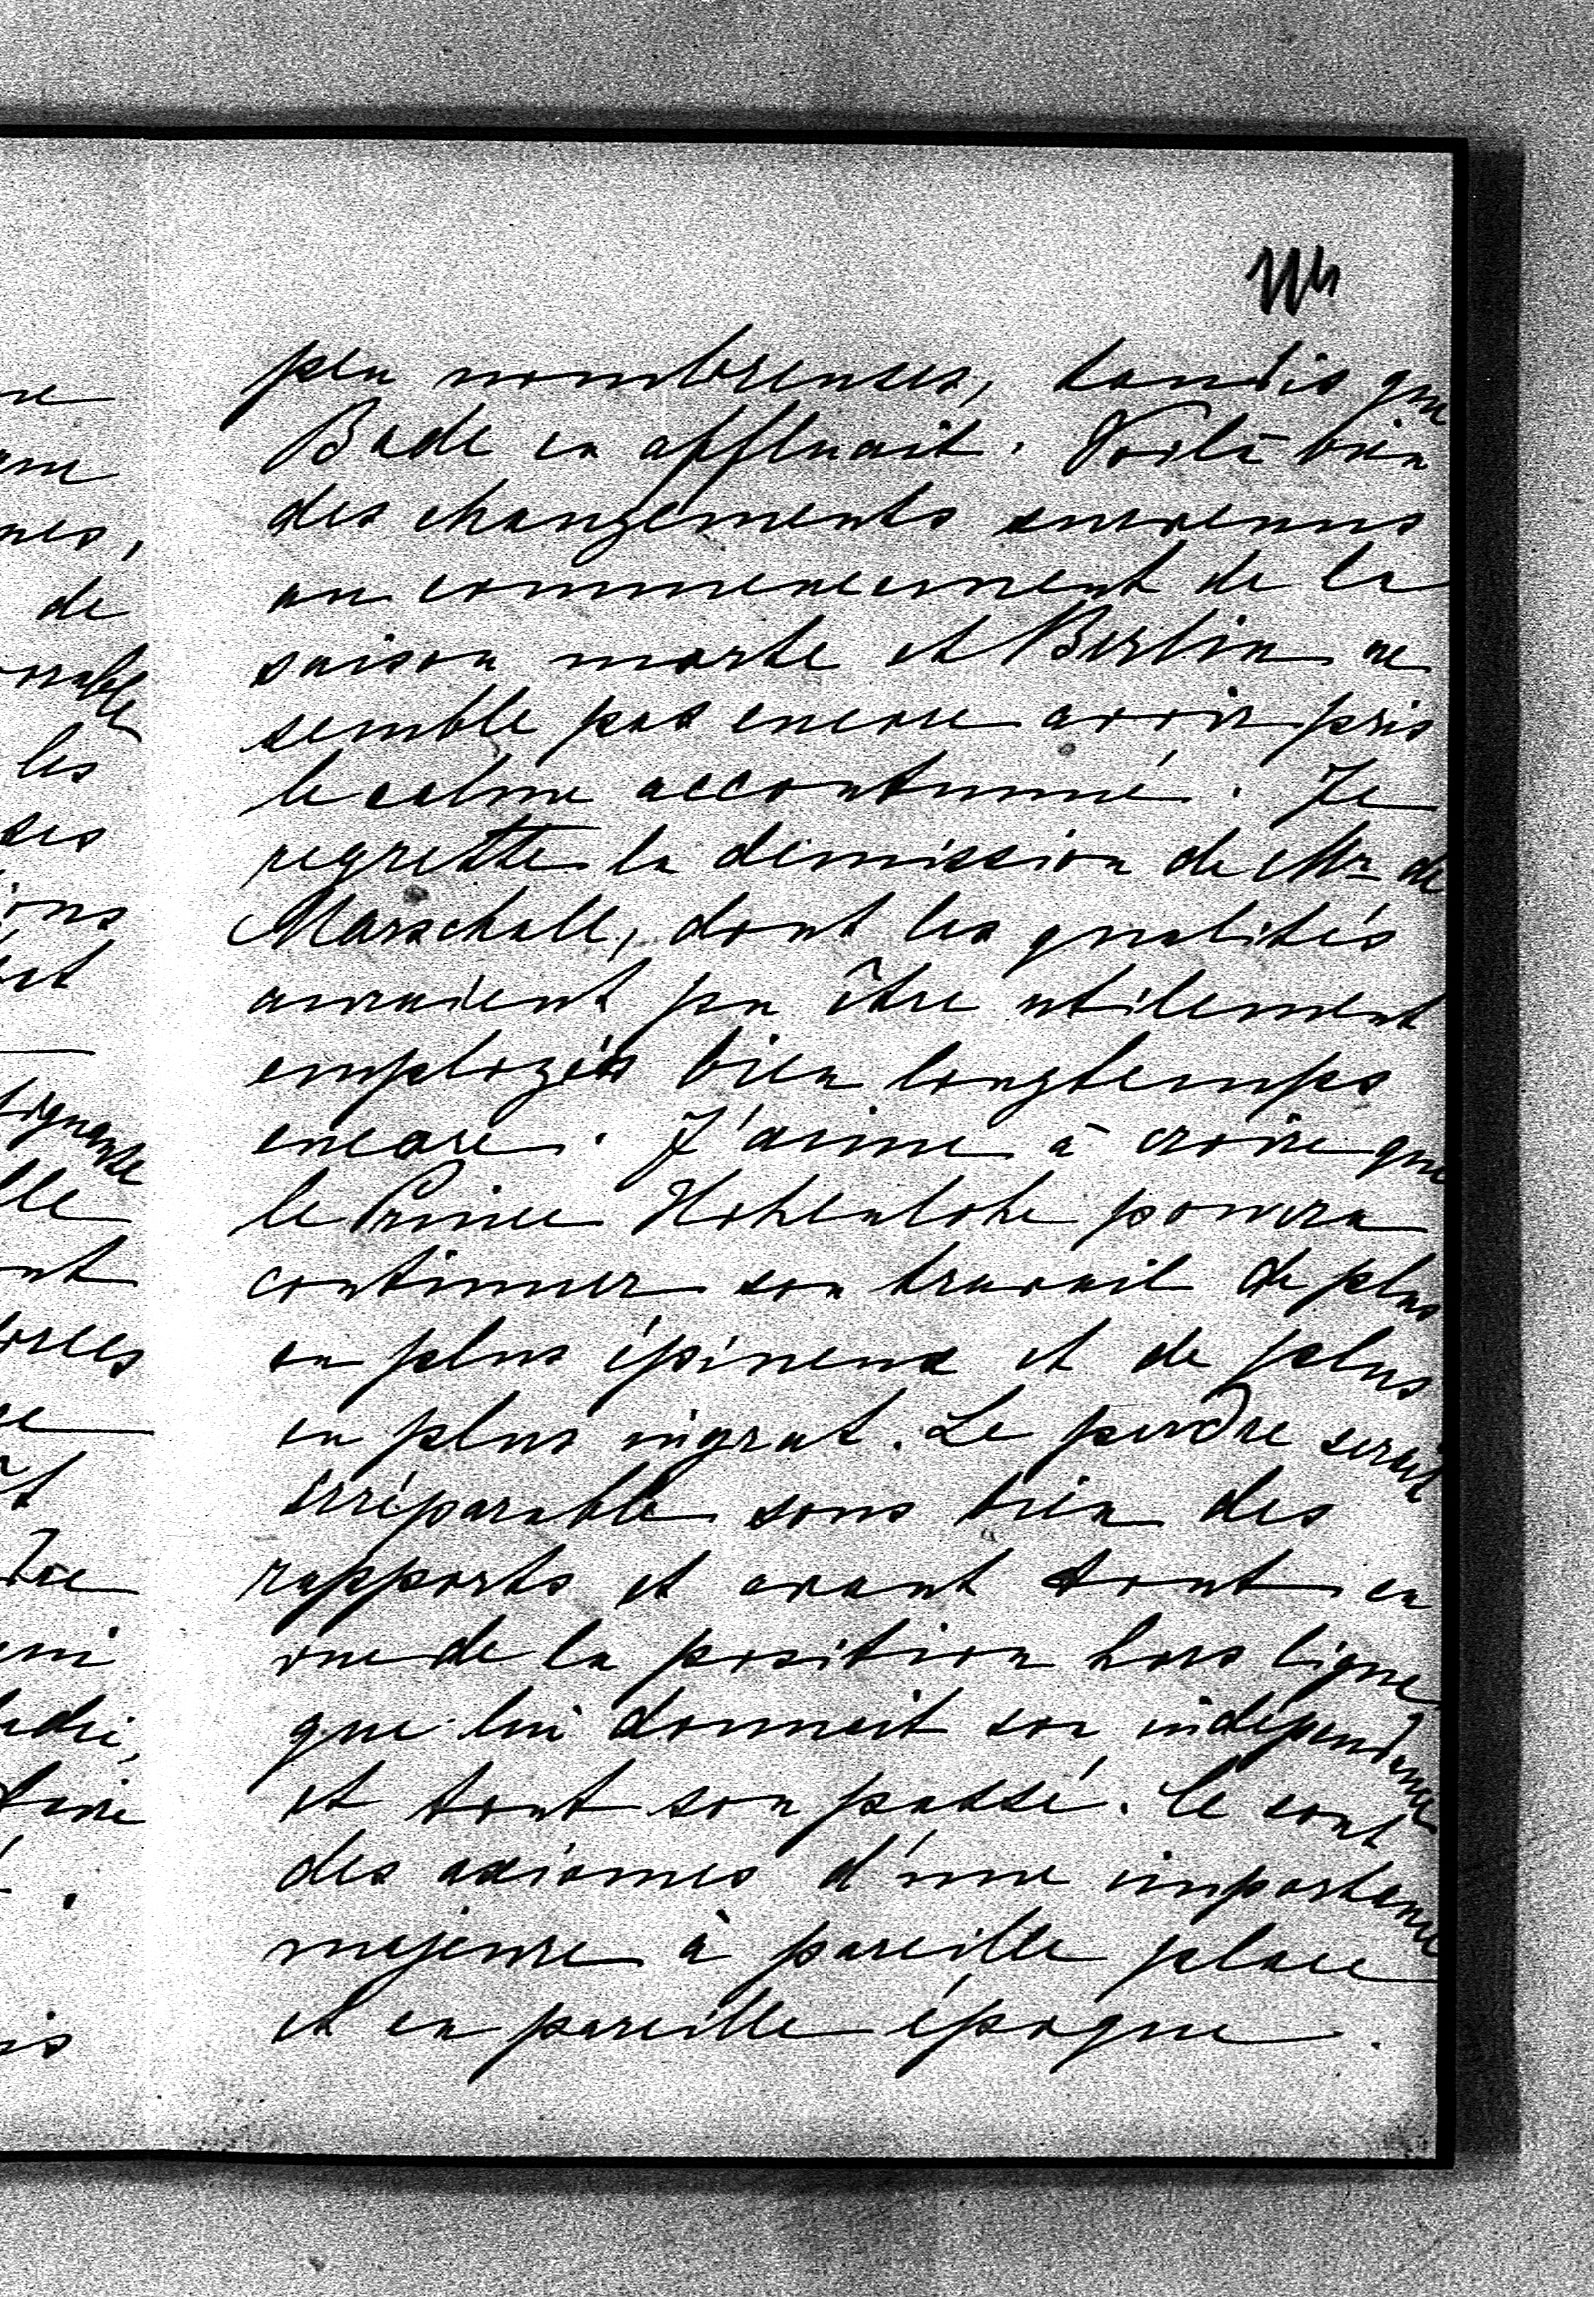 peu nombreuses, tandis que
Bade en affluait. Voilà bien
des changements survenus
au commencement de la
saison morte et Berlin ne
semble pas encore avoir pris
le calme accoutumé. Je
regrette la démission de Mr de
Marschall, dont les qualités
auraient pu être utilement
employés bien longtemps
encore. J'aime à croire que
le Prince Hohenlohe pourra
continuer son travail de plus
en plus épineux et de plus
en plus ingrat. Le perdre serait
irréparable sous bien des
rapports et avant tout en
vue de la position hors ligne
que lui donnait son indépendance
et tout son passé. Ce sont
des axiomes d'une importance
majeure à pareille place
et en pareille époque.